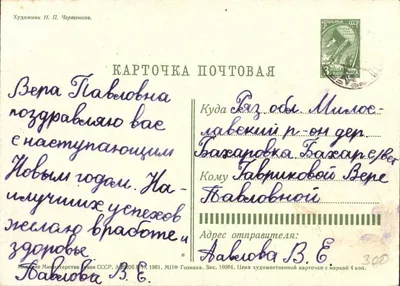 Художник Н. П. Чертенков.
КАРТОЧКА ПОЧТОВАЯ
Вера Павловна
поздравляю вас
с наступающим
Новым годом. На-
илучших успехов
желаю в работе и
здоровье
Павлова В. Е.
Куда Ряз. обл. Милос-
лавский р-он дер.
Бахаровка Бахар с/вет
Кому Гавриковой Вере
Павловной
Адрес отправителя:
Павлова В. Е.
300
Министерства связи СССР. 1961. МПФ Гознака. Зак. Цена художественной карточки с маркой 4 коп.